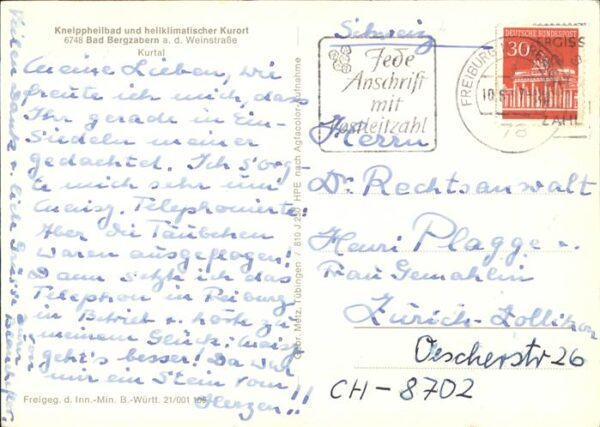 Kneippheilbad und heilklimatischer Kurort
6748 Bad Bergzabern a. d. Weinstraße
Kurtal
Meine Lieben, wie
freute ich mich, dass
Ihr gerade in Ein-
siedeln meiner
gedachtet. Ich sorg-
te mich sehr um
telephonierte
Aber die Täubchen
waren ausgeflogen!
Dann setzte ich das
Telephon in Freiburg
in Betrieb u. hörte zu
meinem Glück:
geht's besser! Da
mir ein Stein vom
Herzen!!
Vielen Dank u. liebe Grüsse
Freigeg. d. Inn.-Min. B.-Württ. 21/001
Gebr. Metz, Tübingen / 810 J 250 HPE nach Agfacolor-Aufnahme
Jede
Anschrift
mit
Postleitzahl
FREIBURG
78
DEUTSCHE BUNDESPOST
30
Schweiz
Herrn
Dr. Rechtsanwalt
Henri Plagge u.
Frau Gemahlin
Zürich-Zollikon
Oescherstr 26
CH-8702